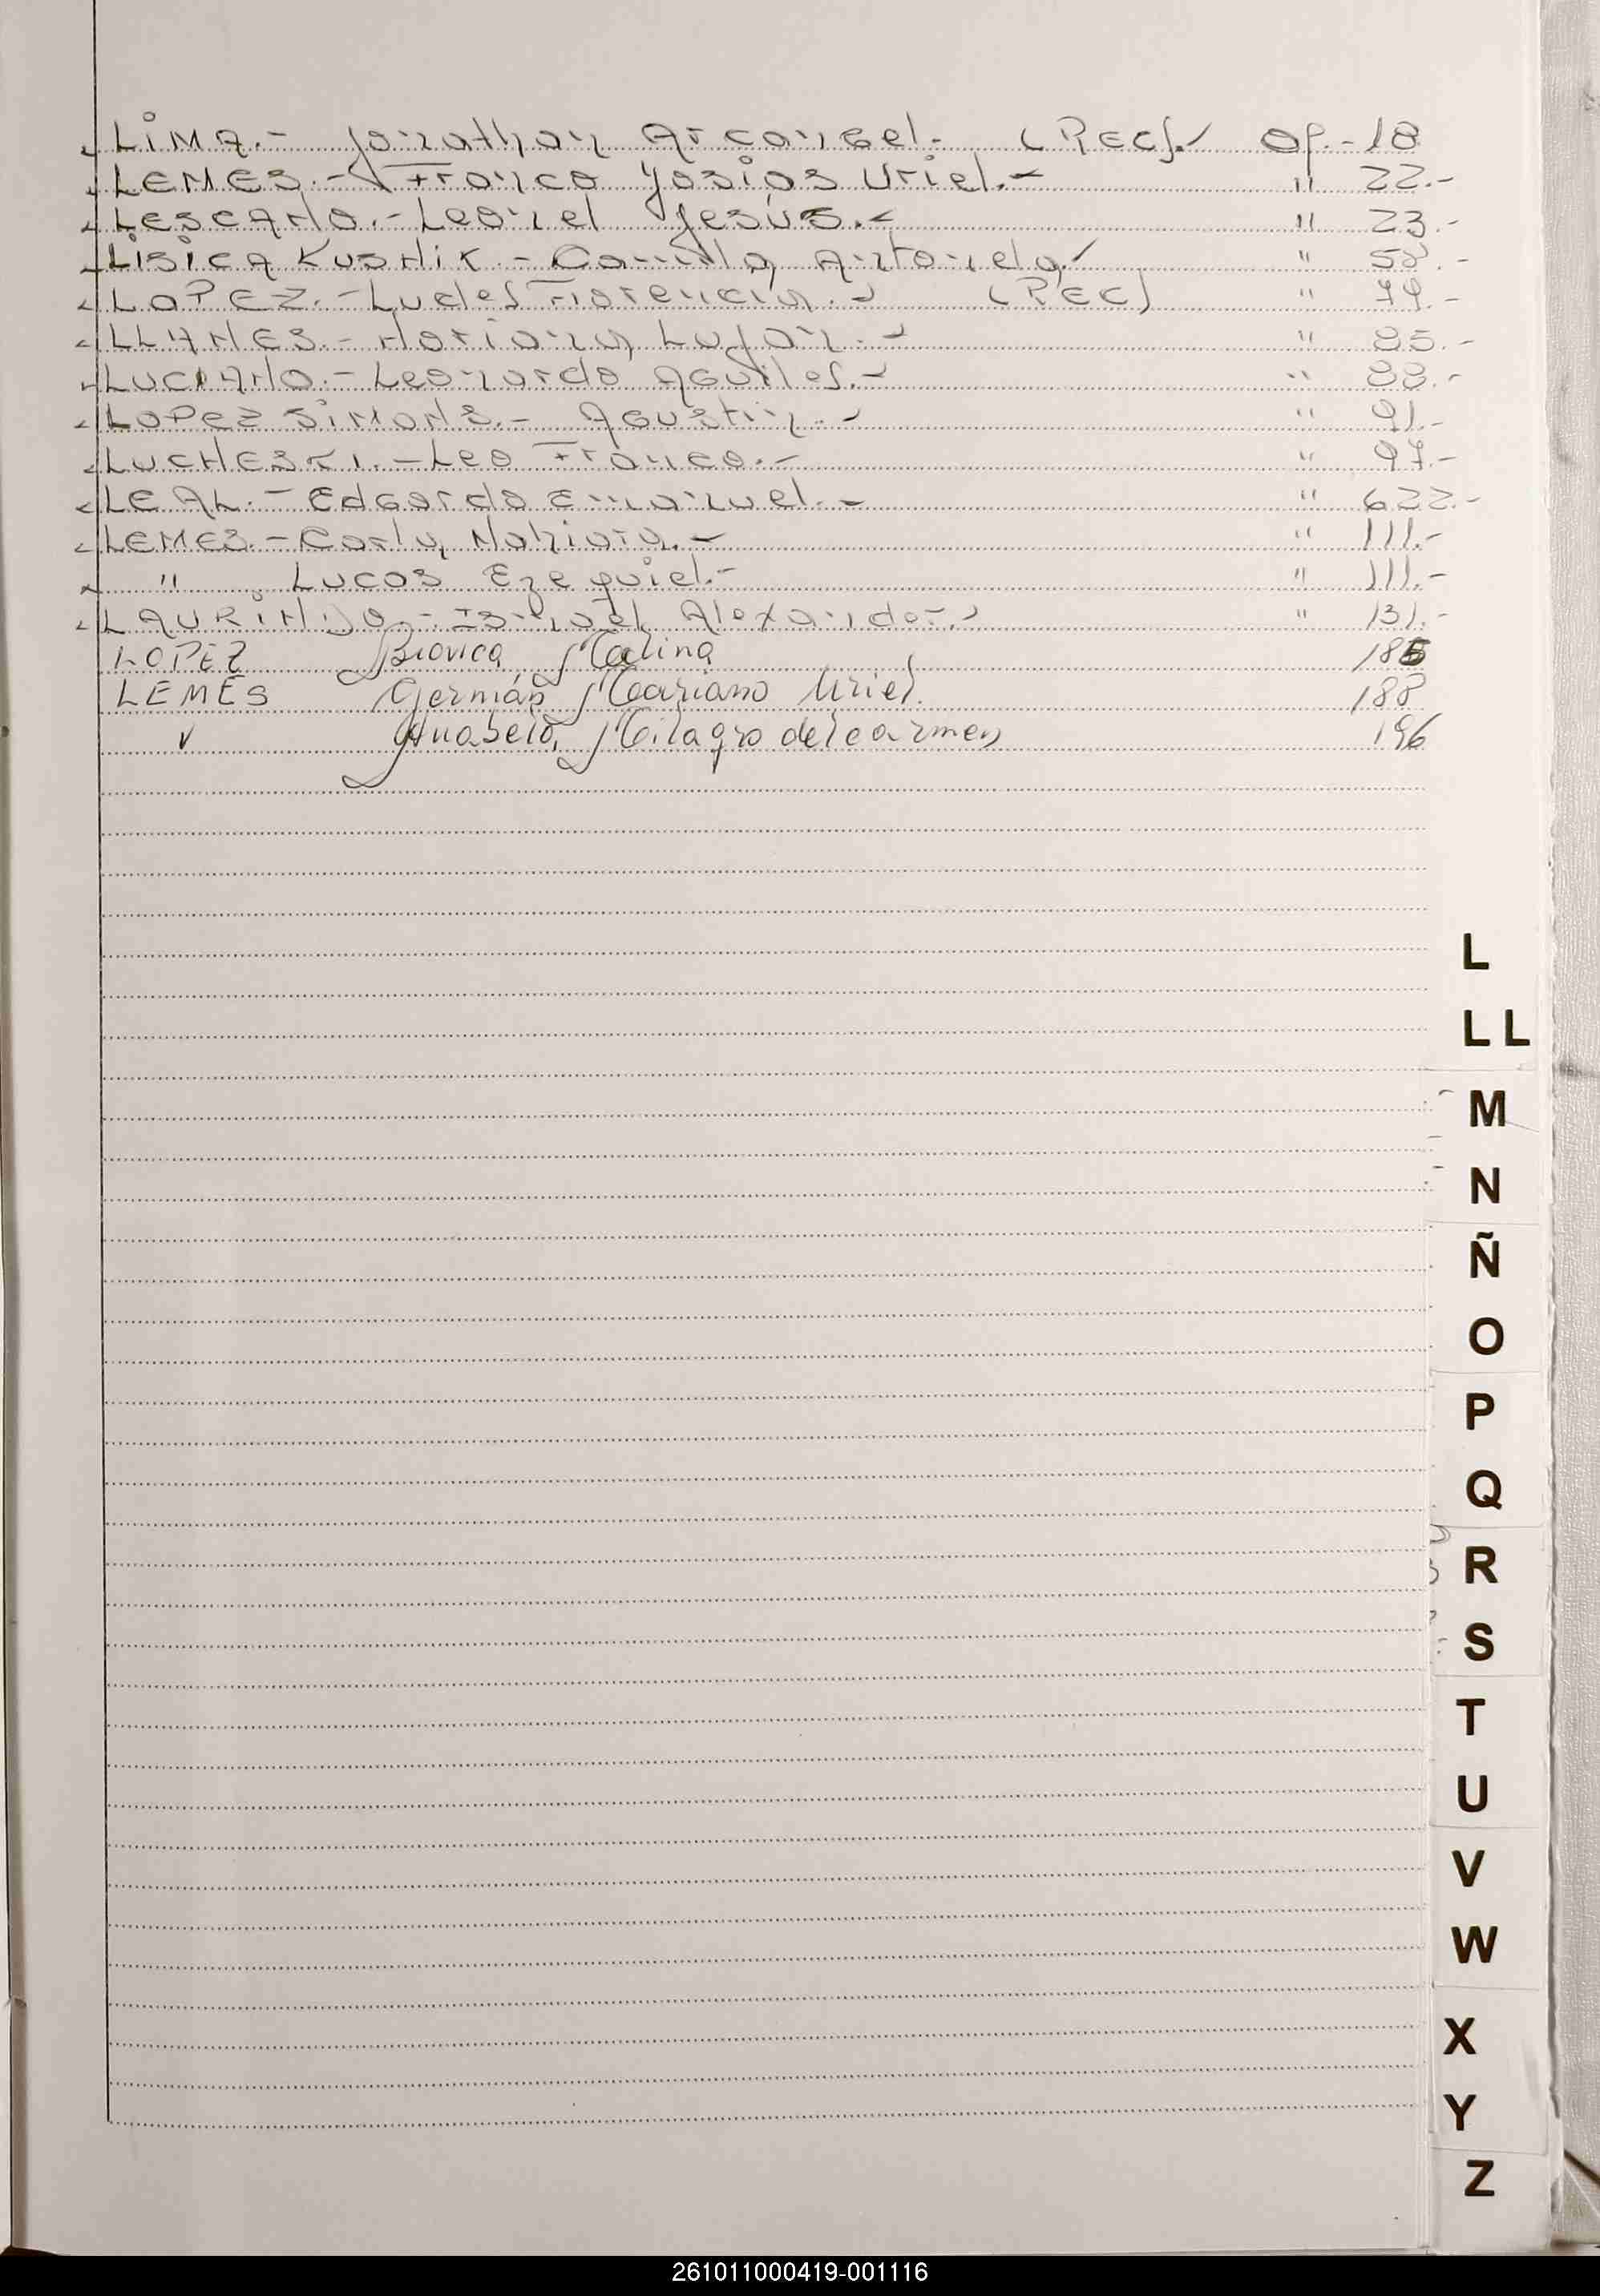 LIMA.- Jonathan Arcangel.- (REC). Of.-18
LEMES.- Franco Yosias Uriel.- " 22.-
LESCANO.- Leonel Jesús.- " 23.-
LISICA KUSNIK.- Camila Antonela " 58.-
LOPEZ.- Florencia.- (REC) " 79.-
LLANES.- Mariana Lujan.- " 85.-
LUCIANO.- Leonardo Aquiles.- " 88.-
LOPEZ SIMONS.- Agustin.- " 91.-
LUCHESKI.- Leo Franco.- " 97.-
LEAL.- Edgardo Emanuel.- " 622.-
LEMES.- Carla Nahiara.- " 111.-
" Lucas Ezequiel.- " 111.-
LAURINDO.- Ismael Alexander.- " 131.-
LOPEZ Bianca Malina 185
LEMES Germán Mariano Uriel. 188
Anabela, Milagro del carmen 196
L
LL
M
N
Ñ
O
P
Q
R
S
T
U
V
W
X
Y
Z
261011000419-001116